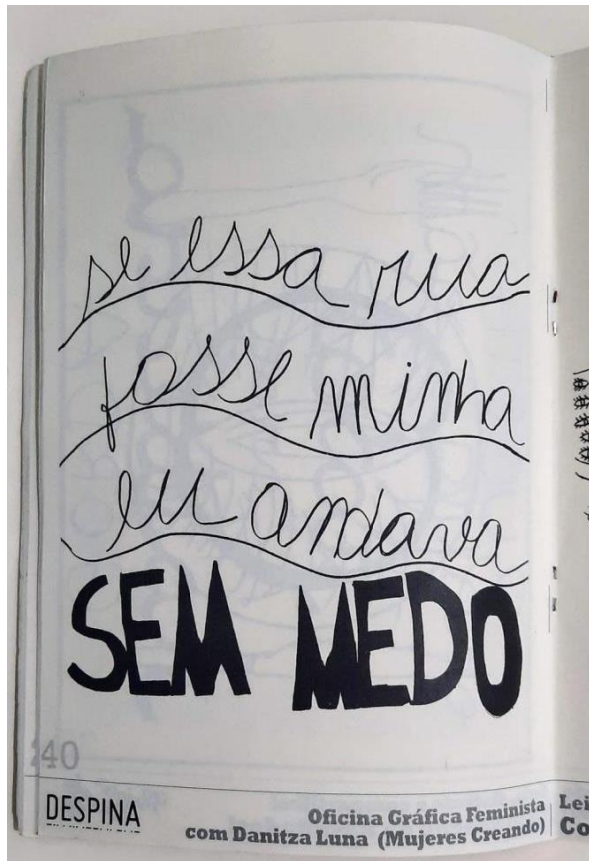 se essa rua
fosse minha
eu andava
SEM MEDO
40
DESPINA
Oficina Gráfica Feminista
com Danitza Luna (Mujeres Creando)
Lei
Co